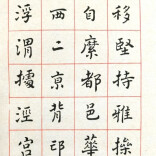 移堅持雅操
自縻都邑華
西二京背邙
浮渭據涇宮